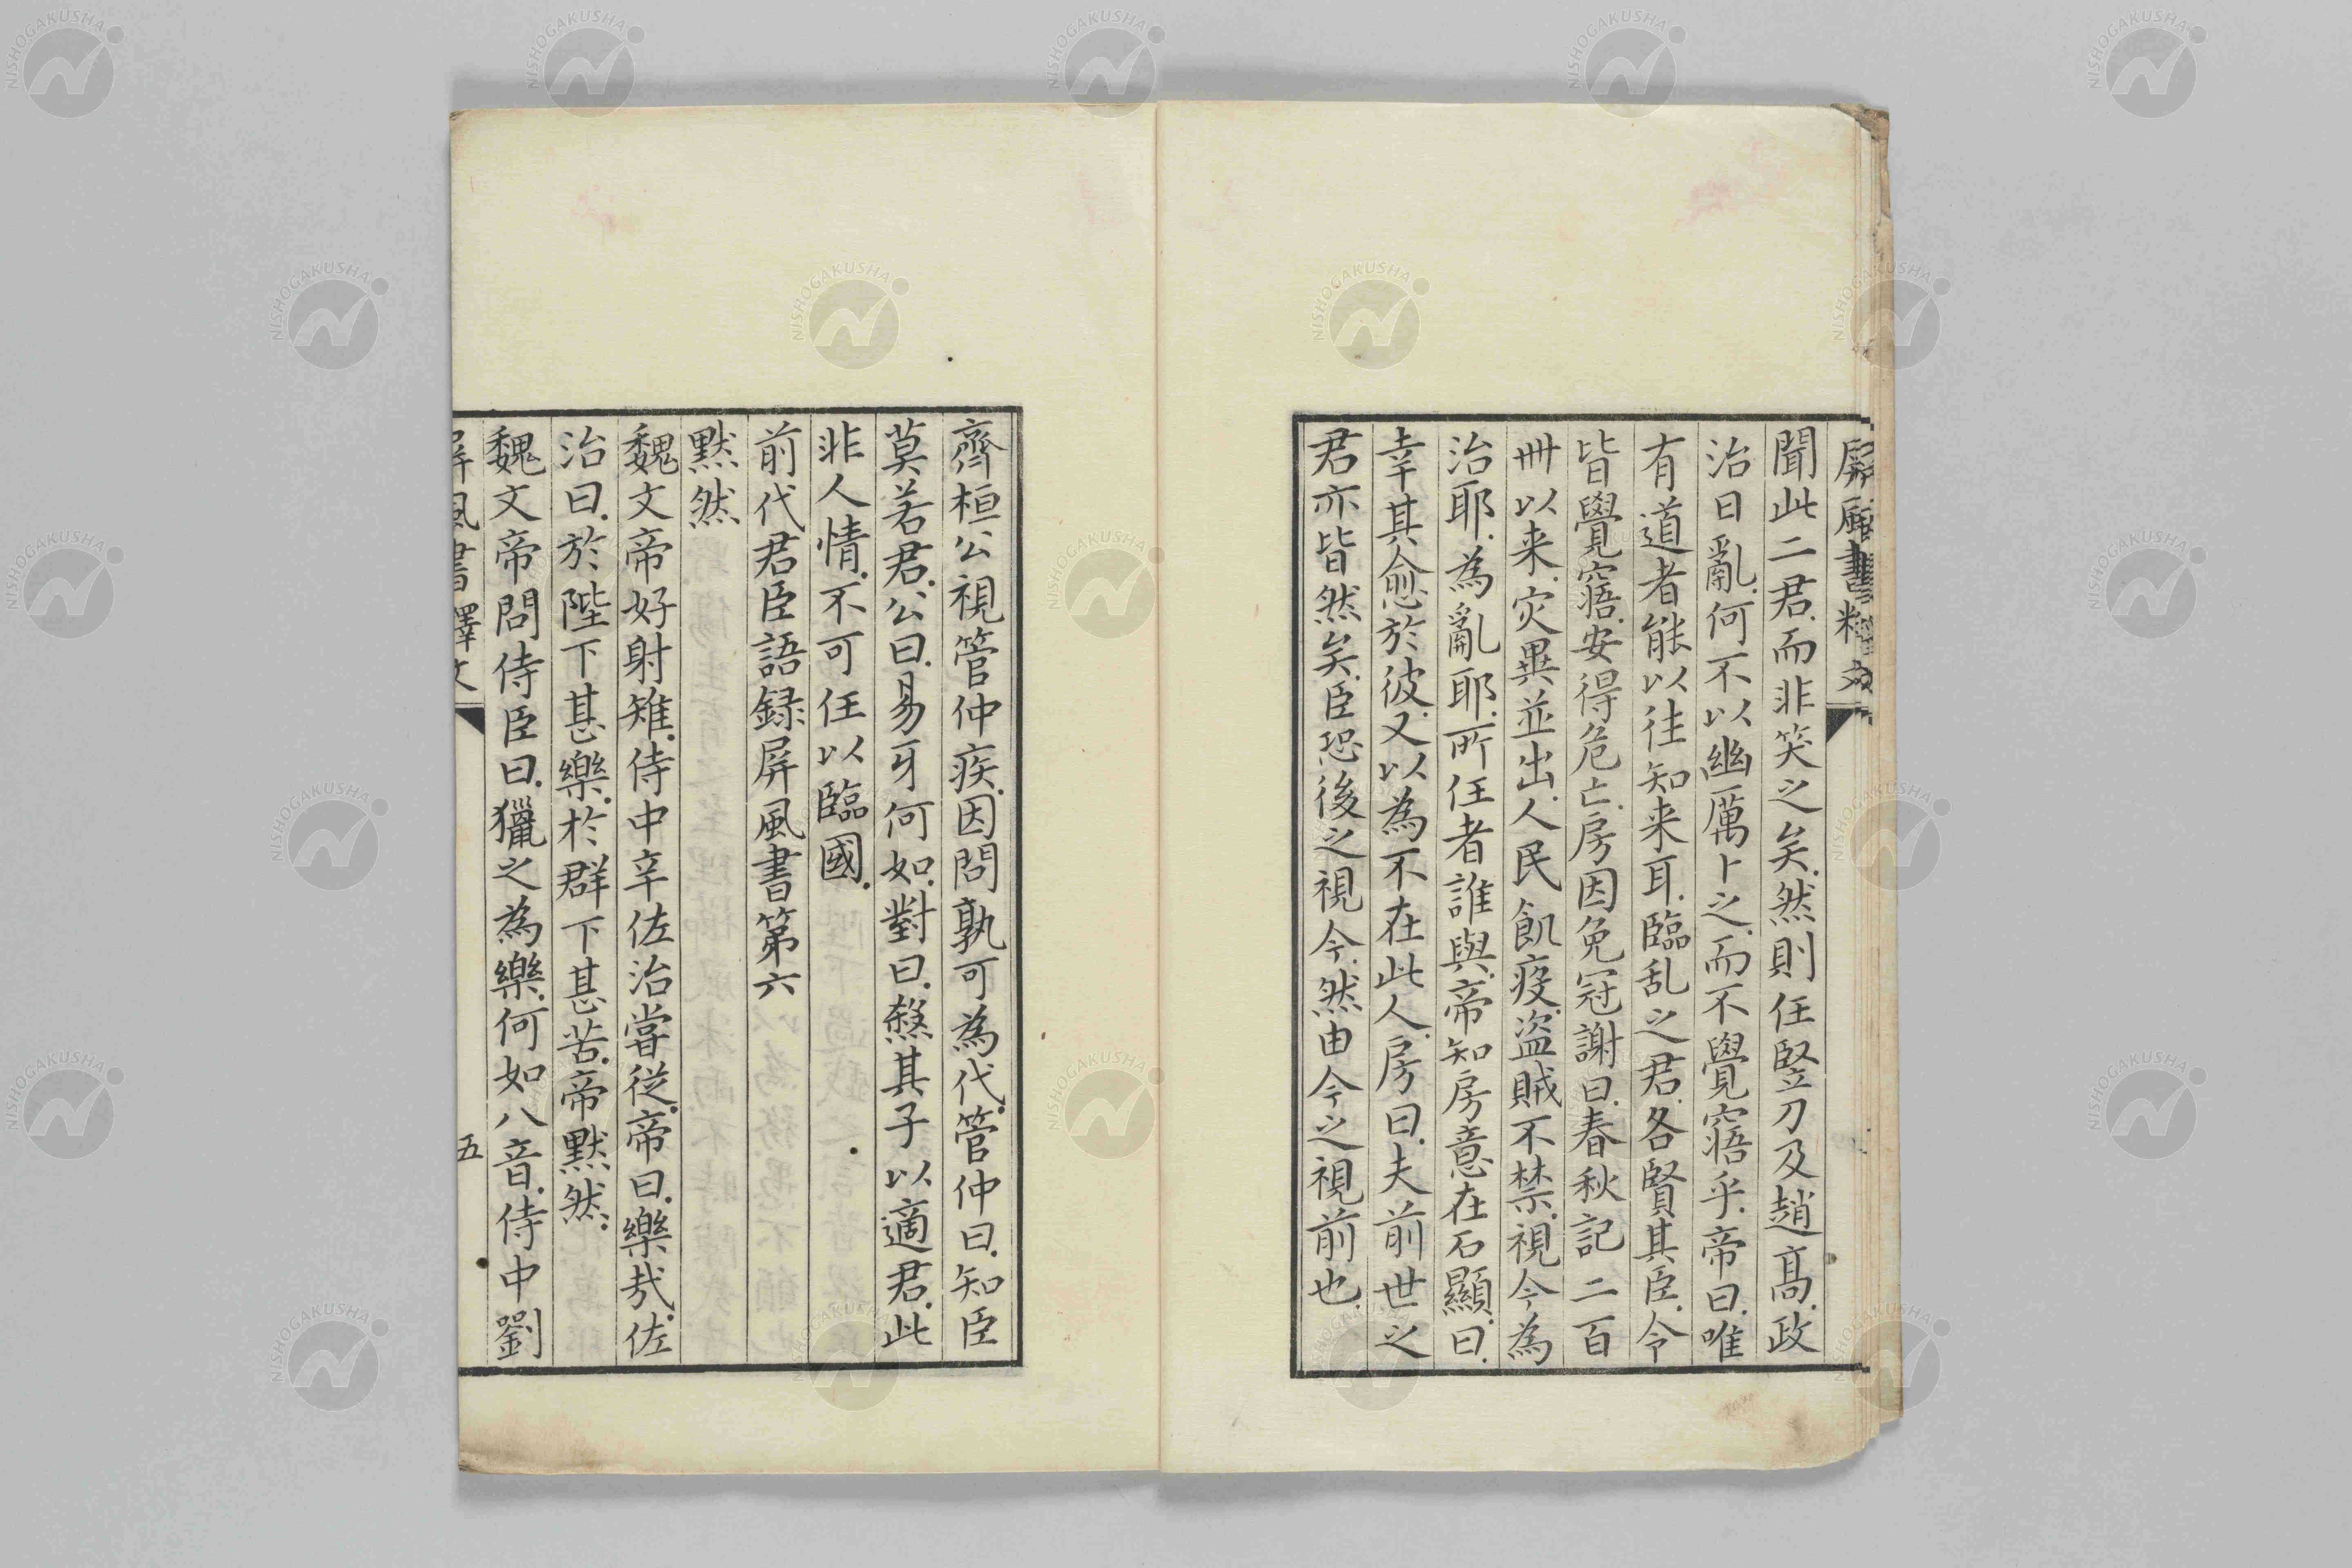 屏風書釋文
聞此二君.而非笑之矣.然則任竪刀及趙高.政
治日亂.何不以幽厲卜之.而不覺寤乎.帝曰.唯
有道者能以往知来耳.臨乱之君.各賢其臣.令
皆覺寤.安得危亡.房因免冠謝曰.春秋記二百
卌以来.灾異並出.人民飢疫.盗賊不禁.視今為
治耶.為亂耶.所任者誰與.帝知房意在石顯.曰.
幸其愈於彼.又以為不在此人.房曰.夫前世之
君亦皆然矣.臣恐後之視今.然由今之視前也.
齊桓公視管仲疾.因問孰可為代.管仲曰.知臣
莫若君.公曰.易牙何如.對曰.煞其子以適君.此
非人情.不可任以臨國.
前代君臣語録屏風書第六
黙然
魏文帝好射雉.侍中辛佐治嘗従.帝曰.樂哉.佐
治曰.於陛下甚樂.於群下甚苦.帝黙然.
魏文帝問侍臣曰.獵之為樂.何如八音.侍中劉
屏風書釋文
五
NISHOGAKUSHA